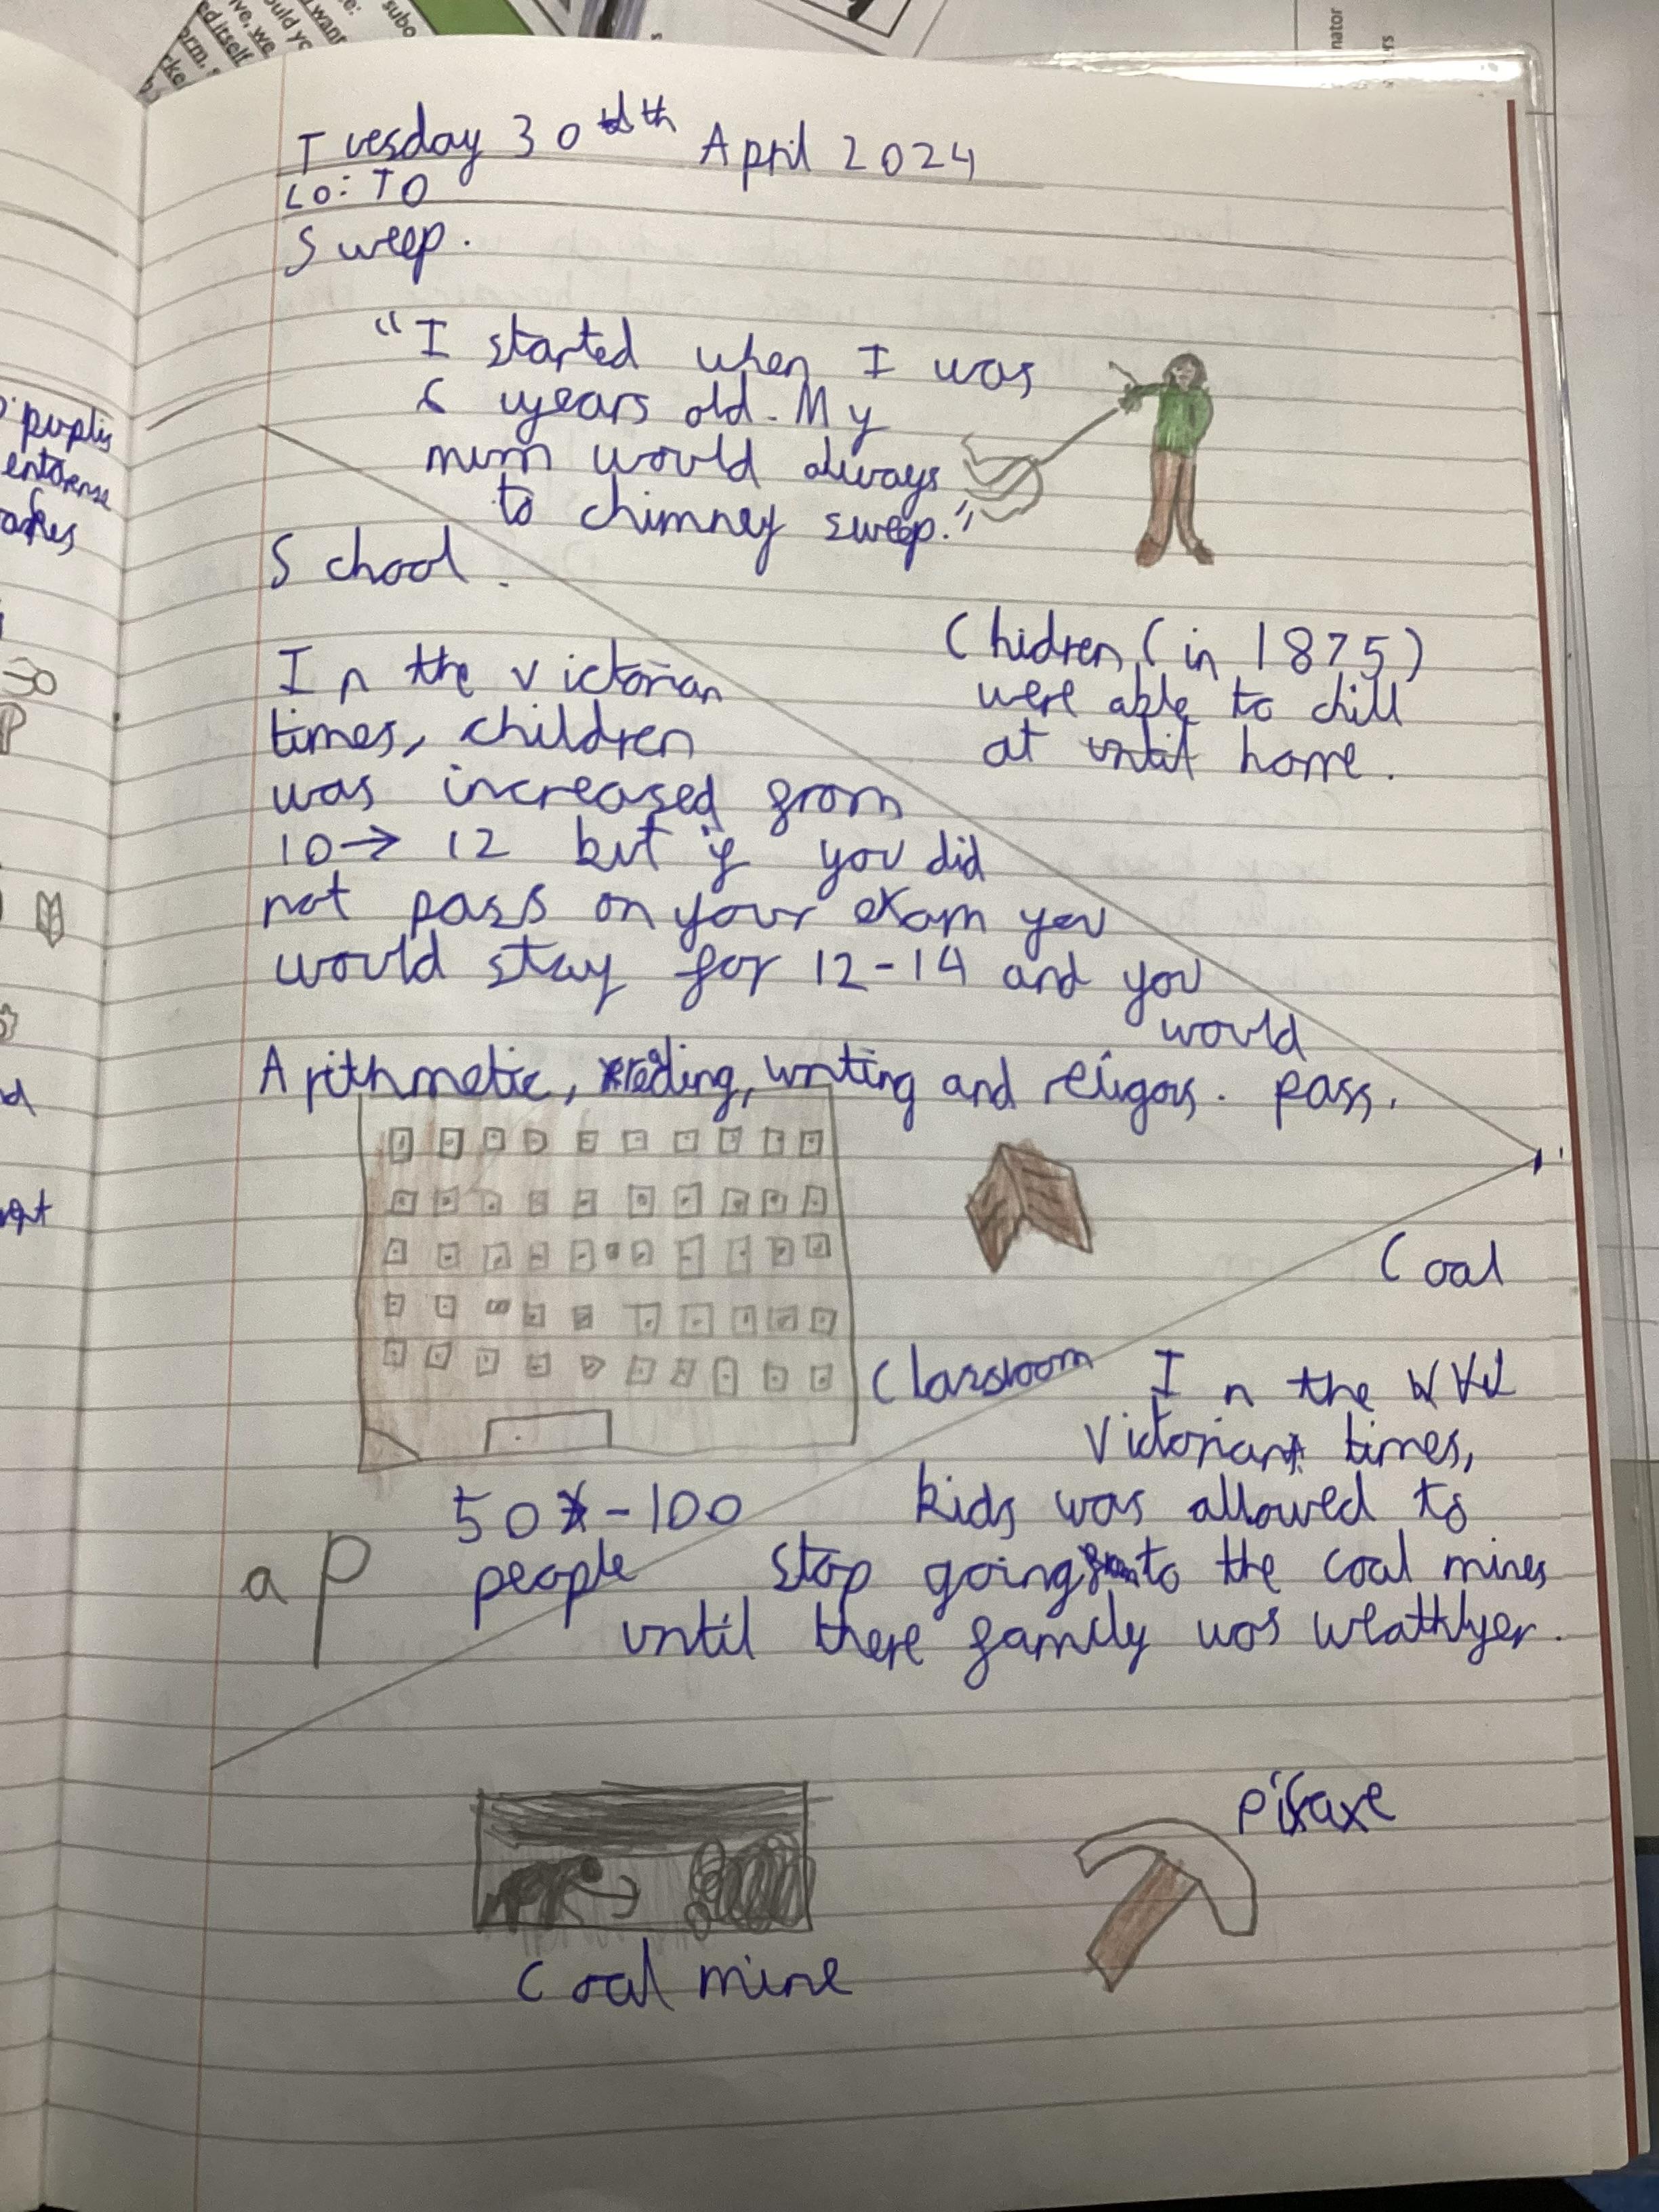 Tuesday 30th April 2024
LO: TO
Sweep.
"I started when I was
6 years old. My
mum would always
to chimney sweep."
School.
Chidren, (in 1875)
were able to chill
at until home.
In the victorian
times, children
was increased from
10→ 12 but if you did
not pass on your exam you
would stay for 12-14 and you
would
pass.
Arithmetic, reding, writing and religos.
Classroom
50-100
people
a P
Coal
In the
Victorian times,
kids was allowed to
stop going to the coal mines
until there family was weathlyer.
Coal mine
pikaxe
puplis